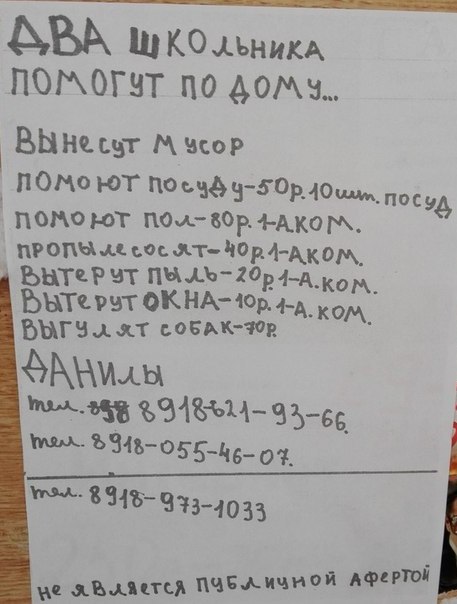 ДВА ШКОЛЬНИКА
ПОМОГУТ ПО ДОМУ...
ВЫНЕСУТ МУСОР
ПОМОЮТ ПОСУДУ-50р.10шт. ПОСУД
ПОМОЮТ ПОЛ-80р.1-А КОМ.
ПРОПЫЛЕСОСЯТ-40р.1-А КОМ.
ВЫТЕРУТ ПЫЛЬ-20р.1-А. КОМ.
ВЫТЕРУТ ОКНА-10р.1-А. КОМ.
ВЫГУЛЯТ СОБАК-70р.
ДАНИЛЫ
тел. 8918-621-93-66.
тел. 8918-055-46-07.
тел. 8918-973-1033
не является публичной афертой